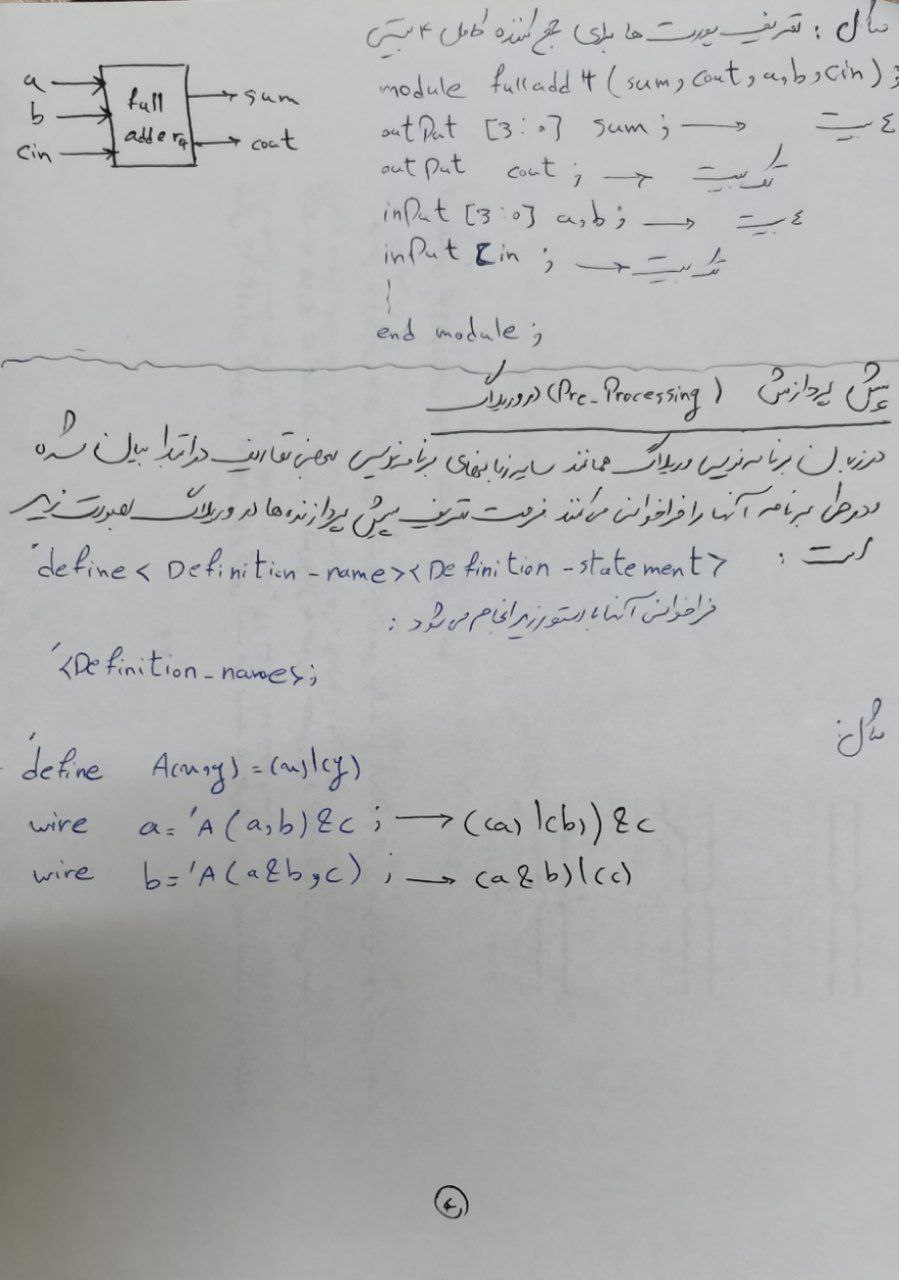 مثال : تعریف پورت ها برای جمع کننده کامل ۴ بیتی
a
b
cin
full
adder4
sum
cout
module fulladd4 (sum, cout, a, b, cin) ;
output [3:0] sum ; → ٤ بیت
output cout ; → تک بیت
input [3:0] a, b ; → ٤ بیت
input Cin ; → تک بیت
end module ;
پیش پردازش (Pre-Processing) در وریلاگ
در زبان برنامه نویسی وریلاگ همانند سایر زبانهای برنامه نویسی بعضی تعاریف در ابتدا بیان شده
و در طول برنامه آنها را فراخوانی می کنند فرمت تعریف پیش پردازنده ها در وریلاگ بصورت زیر
است :
`define < Definition-name><Definition-statement>
فراخوانی آنها با دستور زیر انجام می شود :
`<Definition-name>;
مثال:
`define A(x,y) = (x)|(y)
wire a= 'A (a,b) & c ; → ((a) | (b)) & c
wire b= 'A (a & b, c) ; → (a & b) | (c)